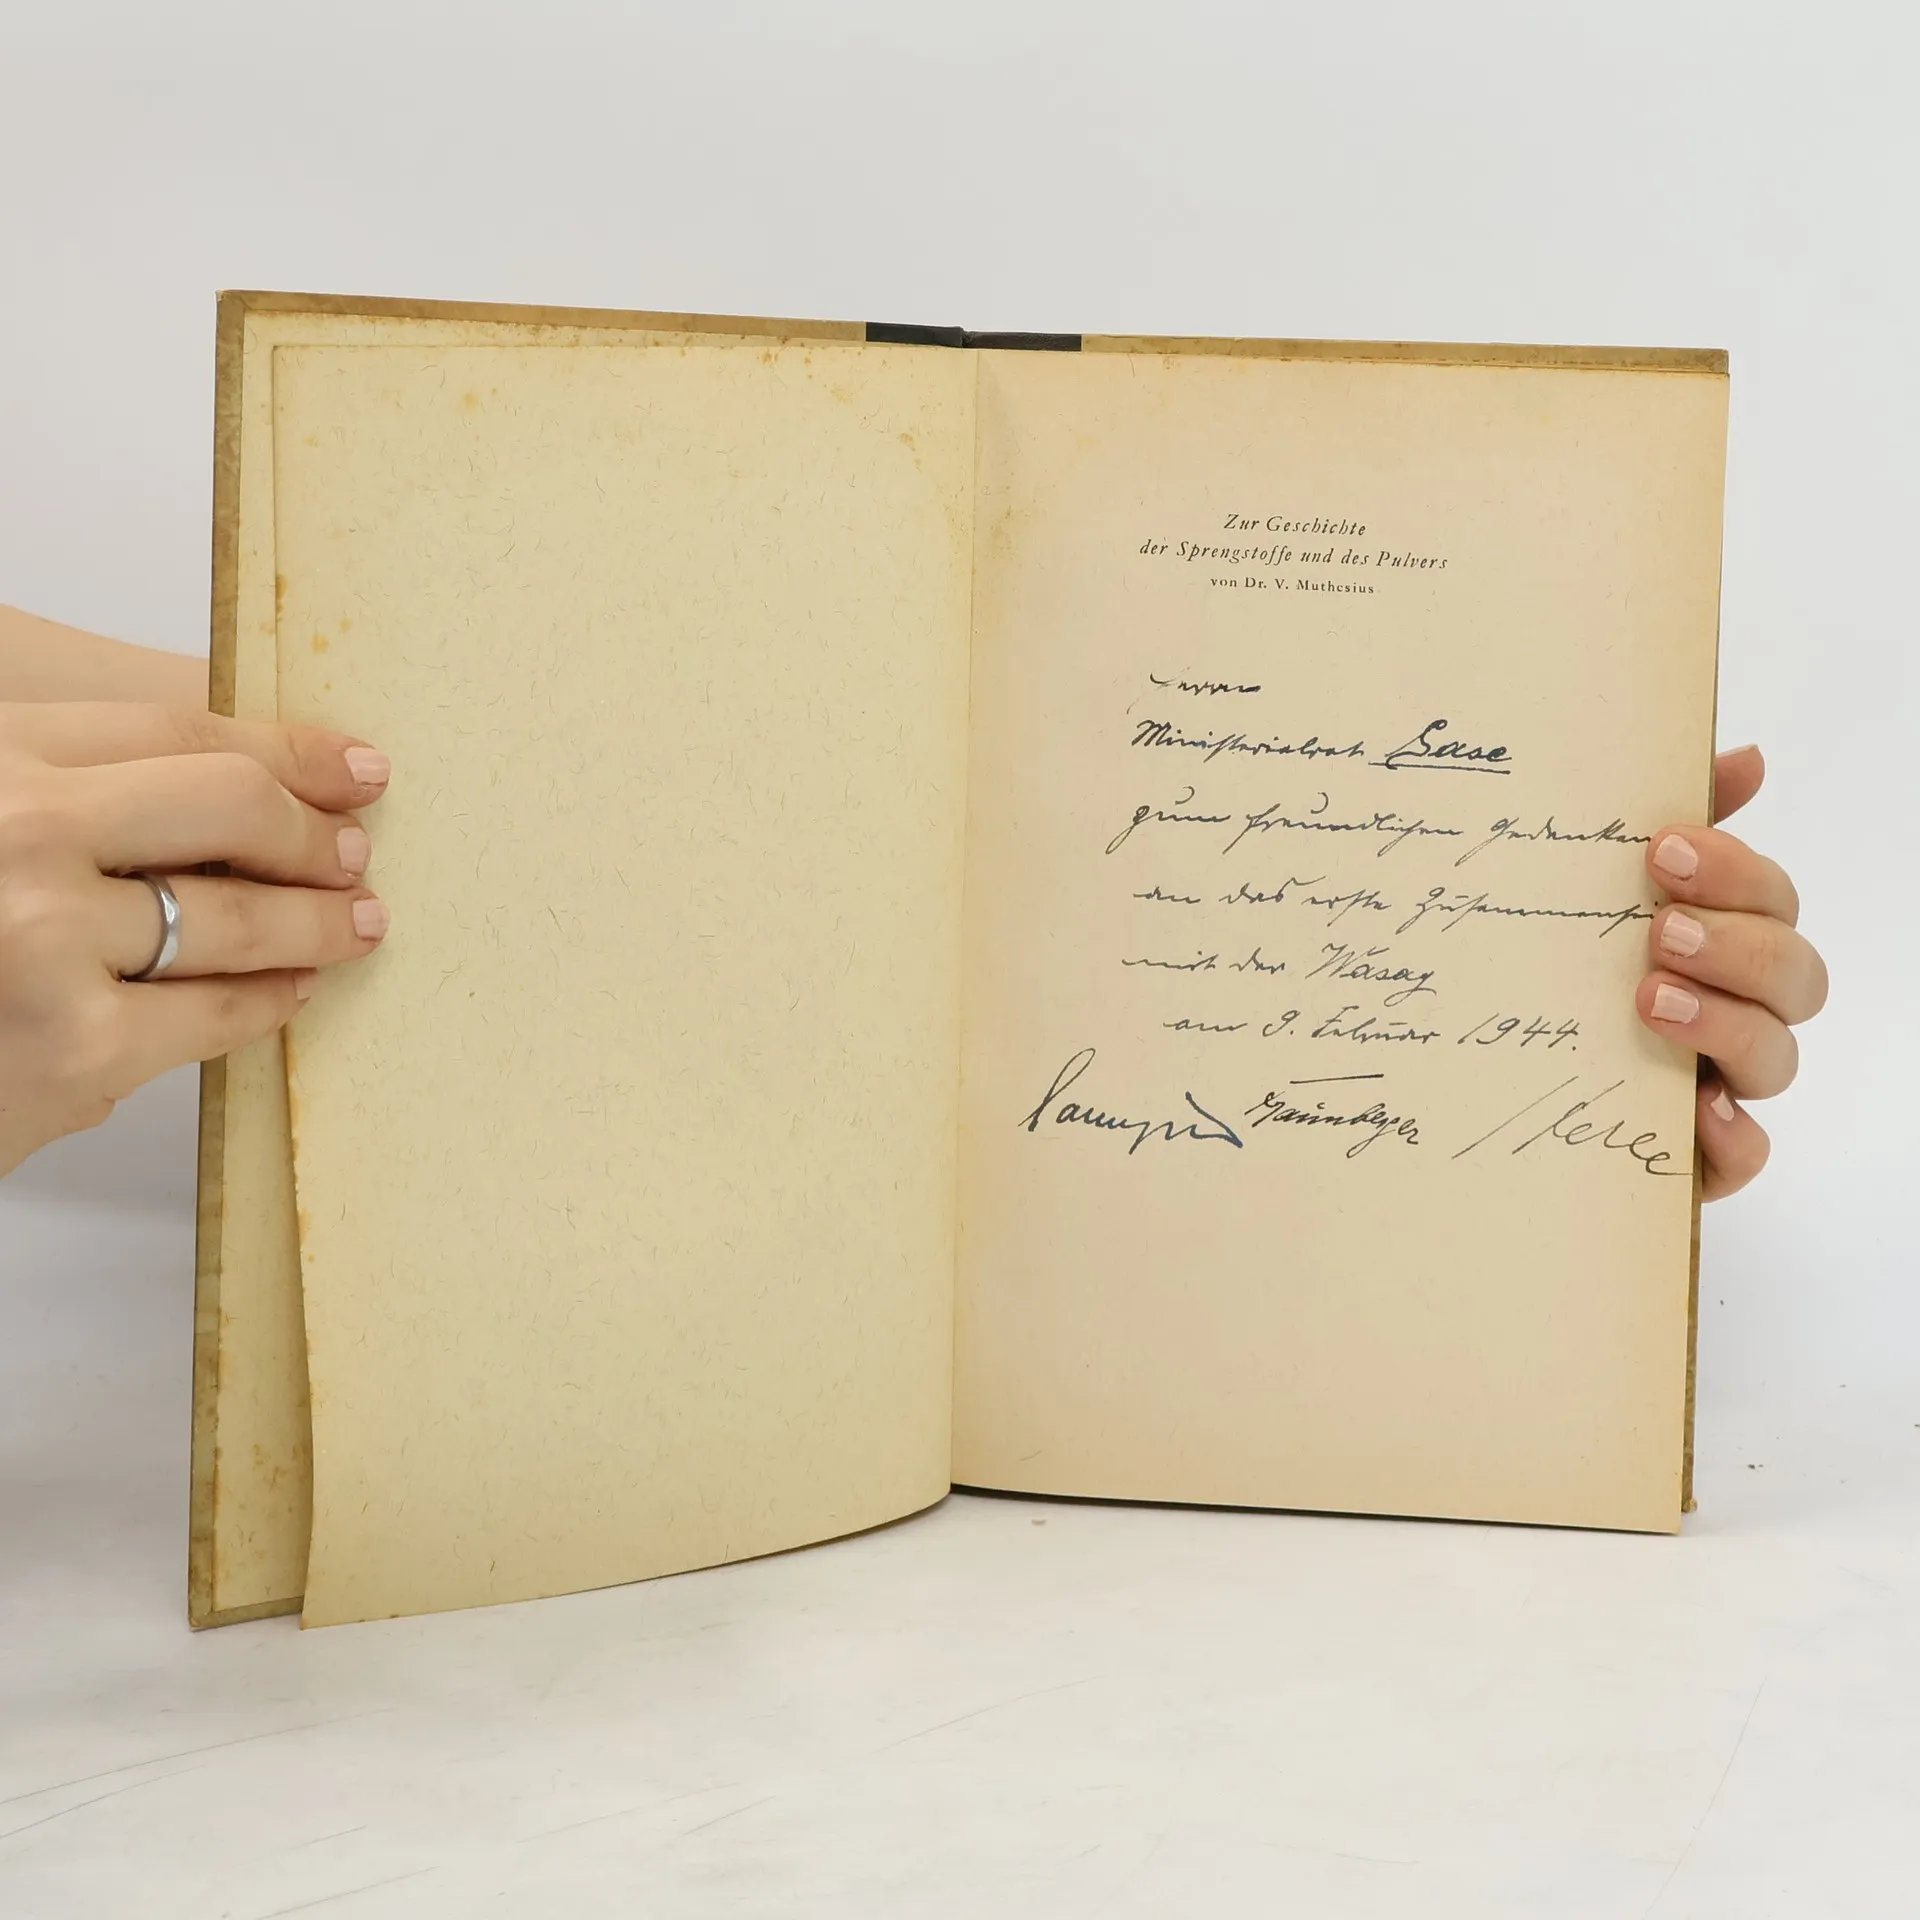 Zur Geschichte
der Sprengstoffe und des Pulvers
von Dr. V. Muthesius
Herrn
Ministerialrat
zum freundlichen Gedenken
an das erste Zusammensei
mit der Wasag
am 9. Februar 1944.